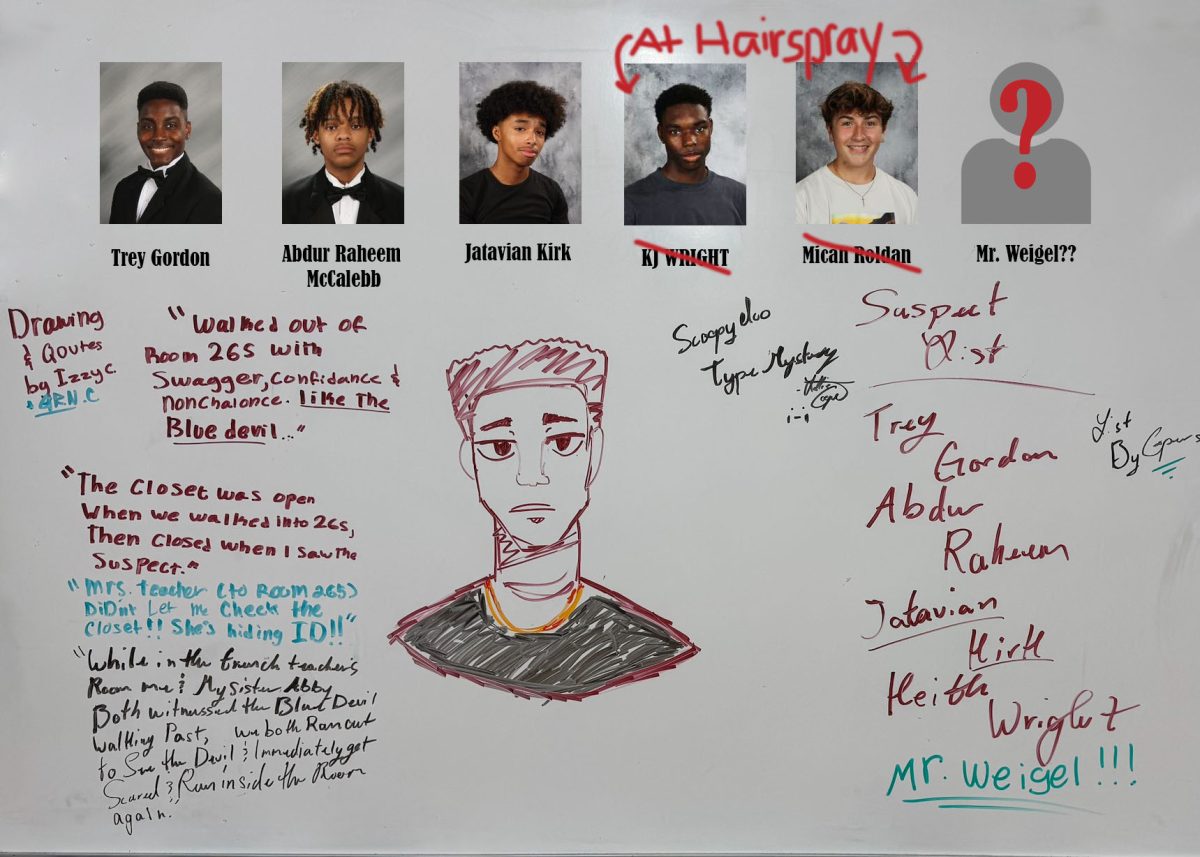 At Hairspray
Trey Gordon
Abdur Raheem
McCalebb
Jatavian Kirk
KJ WRIGHT
Mican Roldan
Mr. Weigel??
Drawing
& Qoutes
by Izzy C.
& GRN.C
"Walked out of
Room 265 with
Swagger, Confidance &
nonchalonce. Like The
Blue devil..."
"The Closet was open
When we walked into 265,
Then Closed when I saw the
Suspect."
"Mrs. teacher (to Room 265)
DiDn't Let me Check the
Closet!! She's hiding ID!!"
"While in the french teacher's
Room me & My sister Abby
Both witnessed the Blue Devil
walking Past, we both Ran out
to See the Devil & Immediately get
Scared & Run inside the Room
again."
Scoopy doo
Type Mystery
Suspect
List
Trey
Gordon
Abdur
Raheem
Jatavian
Kirk
Keith
Wright
Mr. Weigel!!!
List
By